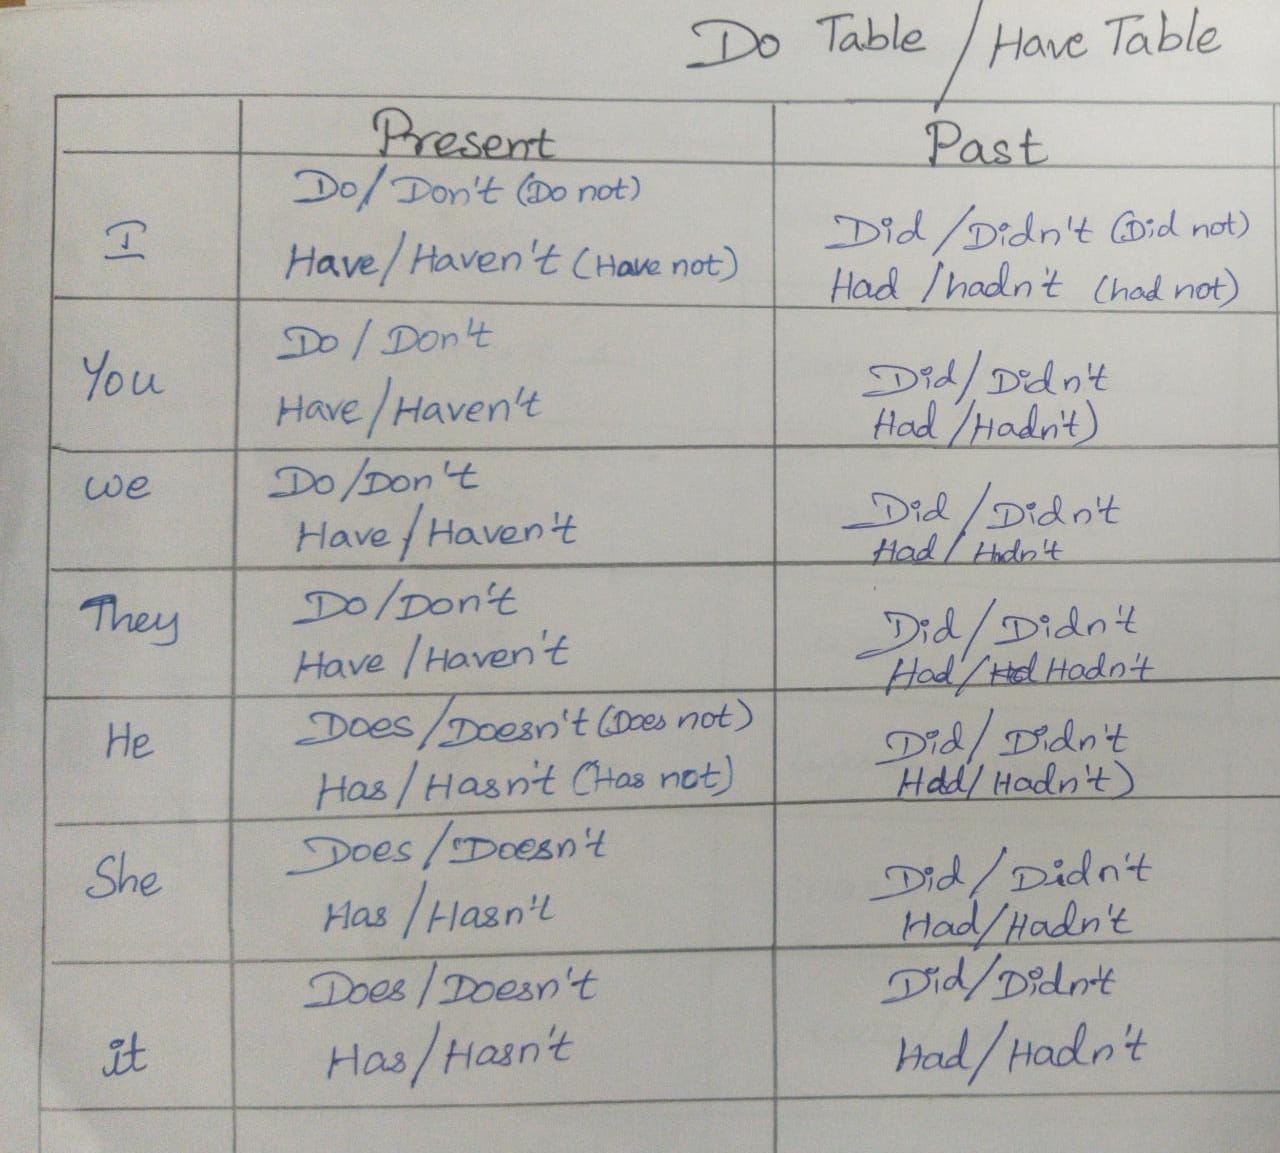 Do Table / Have Table
Present Past
I
Do/Don't (Do not)
Have/Haven't (Have not)
Did/Didn't (Did not)
Had/hadn't (had not)
You
Do/Don't
Have/Haven't
Did/Didn't
Had/Hadn't)
we
Do/Don't
Have/Haven't
Did/Didn't
Had/Hadn't
They
Do/Don't
Have/Haven't
Did/Didn't
Had/Hadn't
He
Does/Doesn't (Does not)
Has/Hasn't (Has not)
Did/Didn't
Had/Hadn't)
She
Does/Doesn't
Has/Hasn't
Did/Didn't
Had/Hadn't
it
Does/Doesn't
Has/Hasn't
Did/Didn't
Had/Hadn't